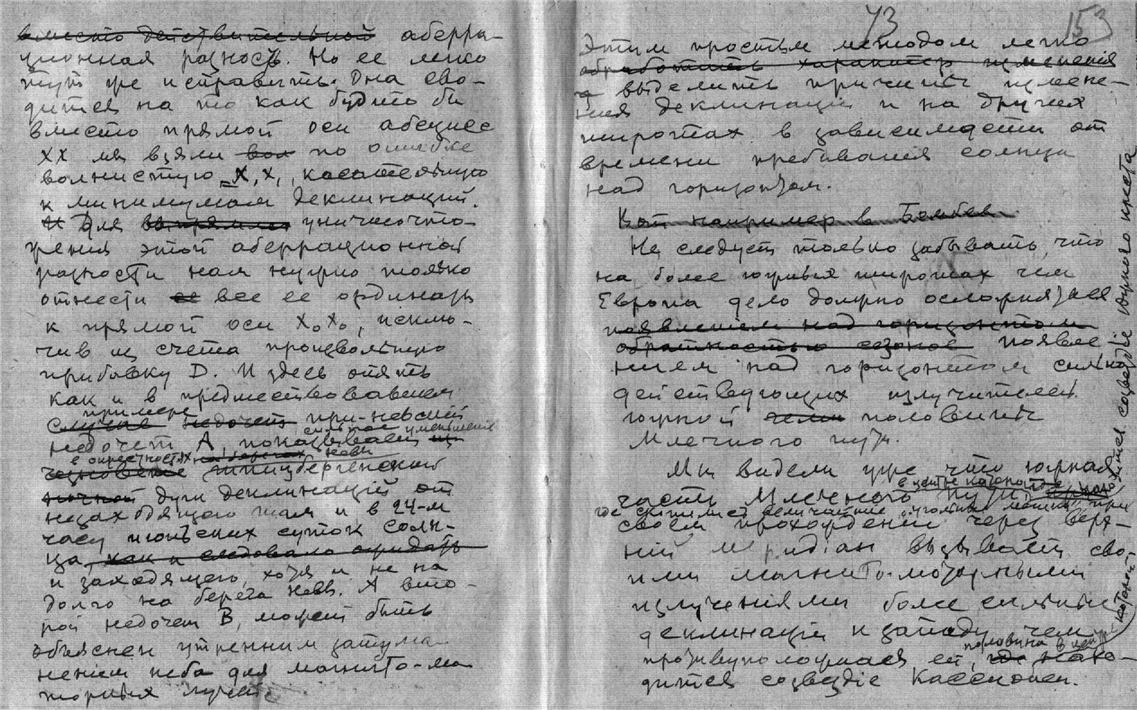 вместо действительной аберра-
ционная разность. Но ее легко
тут же исправить. Она сво-
дится на то как будто бы
вместо прямой оси абсцисс
XX мы взяли вол по ошибке
волнистую X, X, касательную
к минимумам деклинаций.
И Для выпрямл уничто-
жения этой аберрационной
разности нам нужно только
отнести ее все ее ординаты
к прямой оси X₀X₀, исклю-
чив из счета произвольную
прибавку D. И здесь опять
как и в предшествовавшем
примере
случае недочет при-невский
сильное уменьшение
недочет А, показывает
в окрестностях на берегах Невы
исчезновение шпицбергенский
ночной дуги деклинаций от
незаходящего там и в 24-м
часу июньских суток солн-
ца, как и следовало ожидать
и заходящего, хотя и не на
долго на берега Невы. А вто-
рой недочет В, может быть
объяснен утренним затума-
нением неба для магнито-мо-
торных лучей.
73
153
Этим простым методом легко
обработать характер изменения
и выделить причины измене-
ния деклинаций и на других
широтах в зависимости от
времени пребывания солнца
над горизонтом.
Вот например в Бомбее
Не следует только забывать, что
на более южных широтах чем
Европа дело должно осложняться
появлением над горизонтом
обратностью сезонов появле
нием над горизонтом сильно
действующих излучителей
южной половины
Млечного пути.
Мы видели уже что южная
в центре которой
часть Млечного пути,
где скопились величайшие угольные мешки, при
своем прохождении через верх-
ний меридіан вызывает сво-
ими магнито-моторными
излучениями более сильные
деклинаціи к западу чем
половина в центре которой
противуположная ей, где нахо-
дится созвездіе Кассиопеи.
находится созвездіе Южного креста